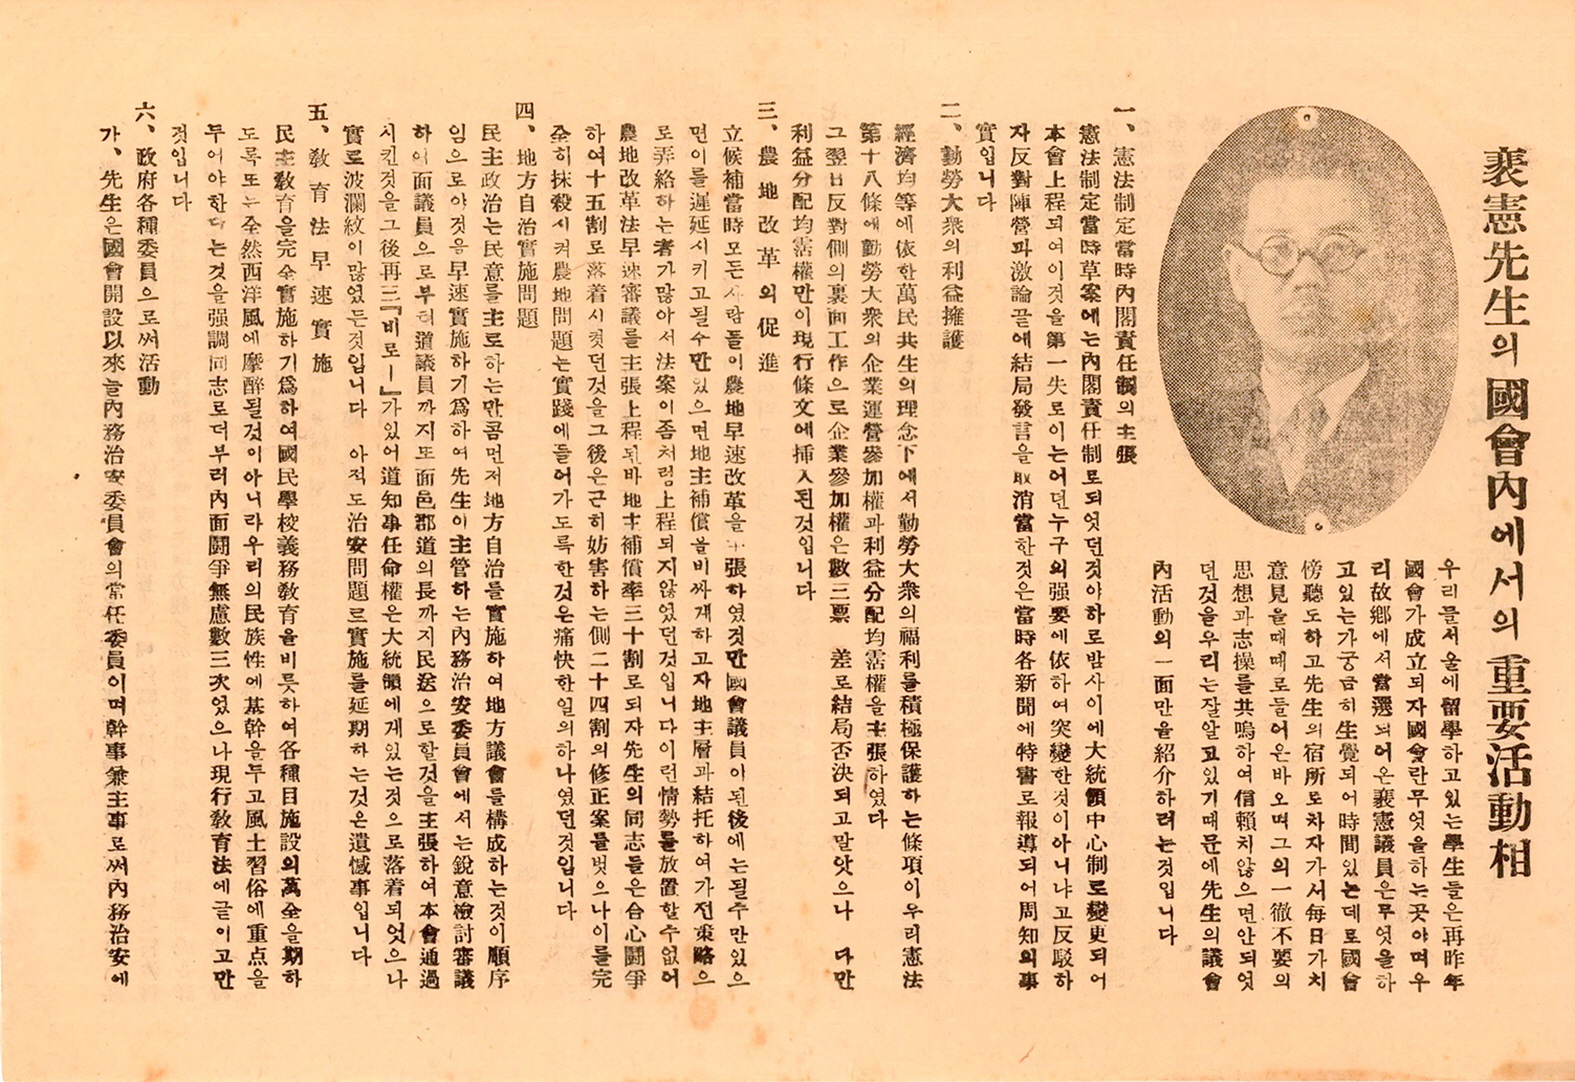 裵憲先生의國會內에서의重要活動相
우리를서울에留學하고있는學生들은再昨年
國會가成立되자國會란무엇을하는곳이며우
리故鄕에서當選되어온裵憲議員은무엇을하
고있는가궁금히生覺되어時間있는데로國會
傍聽도하고先生의宿所로차자가서每日가치
意見을때때로들어온바오며그의一徹不要의
思想과志操를共鳴하여信賴치않으면안되엇
던것을우리는잘알고있기때문에先生의議會
內活動의一面만을紹介하려는것입니다
一、憲法制定當時內閣責任制의主張
憲法制定當時草案에는內閣責任制로되엇던것이하로밤사이에大統領中心制로變更되어
本會上程되여이것을第一失로이는어떤누구의强要에依하여突變한것이아니냐고反駁하
자反對陣營과激論끝에結局發言을取消當한것은當時各新聞에特書로報導되어周知의事
實입니다
二、勤勞大衆의利益擁護
經濟均等에依한萬民共生의理念下에서勤勞大衆의福利를積極保護하는條項이우리憲法
第十八條에勤勞大衆의企業運營參加權과利益分配均霑權을主張하였다
그翌日反對側의裏面工作으로企業參加權은數三票 差로結局否決되고말앗으나 다만
利益分配均霑權만이現行條文에揷入된것입니다
三、農地改革의促進
立候補當時모든사람들이農地早速改革을主張하였것만國會議員이된後에는될수만있으
면이를遲延시키고될수만있으면地主補償을비싸게하고자地主層과結托하여가진策略으
로弄絡하는者가많아서法案이좀처럼上程되지않었던것입니다이런情勢를放置할수없어
農地改革法早速審議를主張上程된바地主補償率三十割로되자先生의同志들은合心鬪爭
하여十五割로落着시켯던것을그後은근히妨害하는側二十四割의修正案를벗으나이를完
全히抹殺시켜農地問題는實踐에들어가도록한것은痛快한일의하나였던것입니다
四、地方自治實施問題
民主政治는民意를主로하는만콤먼저地方自治를實施하여地方議會를構成하는것이順序
임으로이것을早速實施하기爲하여先生이主管하는內務治安委員會에서는銳意檢討審議
하여面議員으로부터道議員까지또面邑郡道의長까지民選으로할것을主張하여本會通過
시킨것을그後再三『비로ー』가있어道知事任命權은大統領에게있는것으로落着되엇으나
實로波瀾紋이많었든것입니다 아직도治安問題로實施를延期하는것은遺憾事입니다
五、敎育法早速實施
民主敎育을完全實施하기爲하여國民學校義務敎育을비롯하여各種目施設의萬全을期하
도록또는全然西洋風에摩醉될것이아니라우리의民族性에基幹을두고風土習俗에重点을
두어야한다는것을强調同志로더부러內面鬪爭無慮數三次었으나現行敎育法에글이고만
것입니다
六、政府各種委員으로써活動
가、先生은國會開設以來늘內務治安委員會의常任委員이며幹事兼主事로써內務治安에